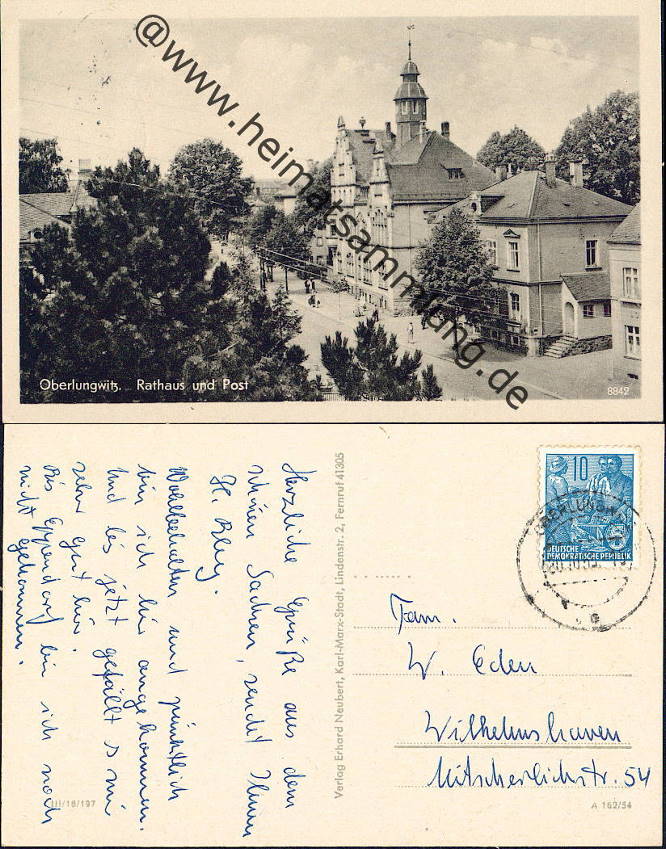 @www.heimatsammlung.de
Oberlungwitz. Rathaus und Post
8842
Herzliche Grüße aus dem
schönen Sachsen, sendet Ihnen
H.
Wohlbehalten und pünktlich
bin ich hier angekommen.
Und bis jetzt gefällt s mir
sehr gut hier.
Bis Eppendorf bin ich noch
nicht gekommen.
III/18/197
Verlag Erhard Neubert, Karl-Marx-Stadt, Lindenstr. 2, Fernruf 41305
10
DEUTSCHE
DEMOKRATISCHE REPUBLIK
OBERLUNGWITZ
Fam.
W. Eden
Wilhelmshaven
Mitscherlichstr. 54
A 162/54